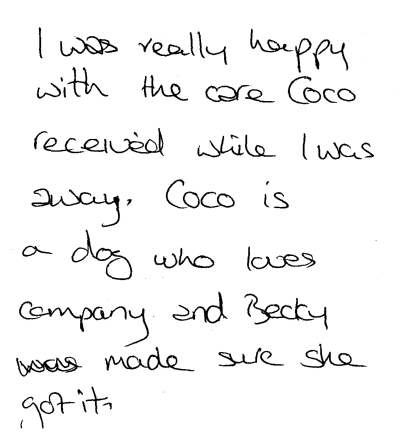 I was really happy
with the care Coco
received while I was
away. Coco is
a dog who loves
company and Becky
was made sure she
got it.